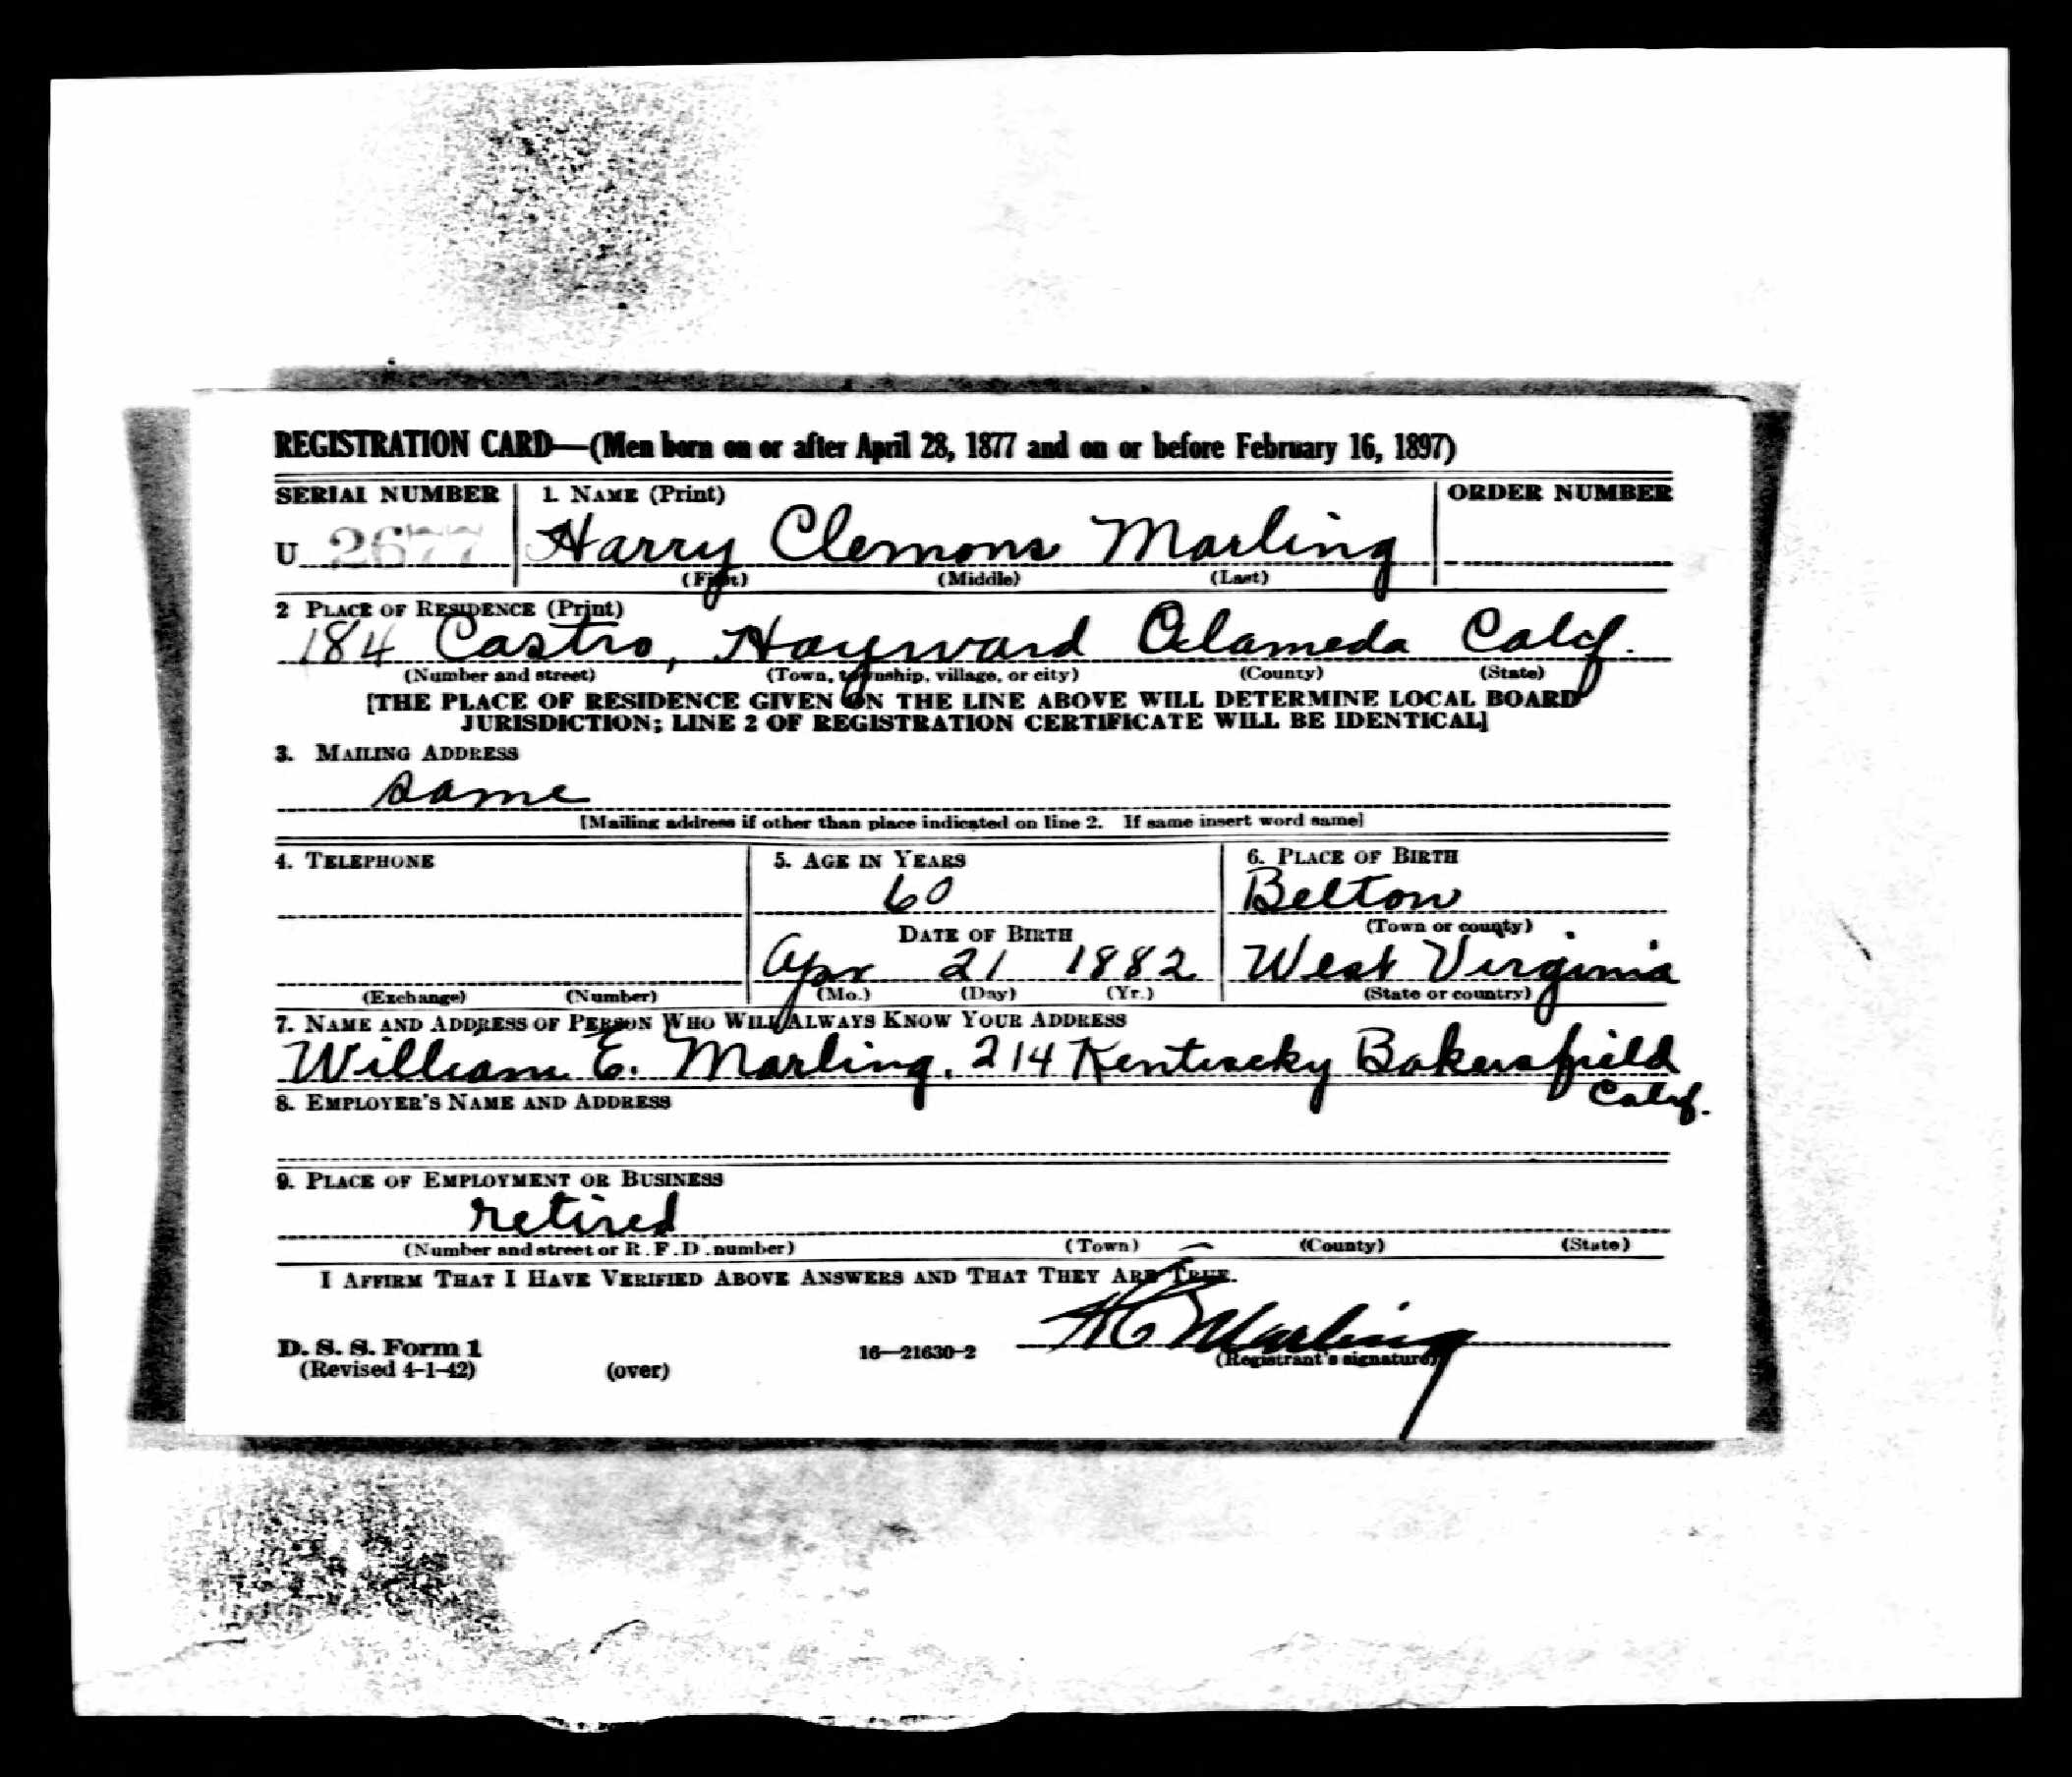 REGISTRATION CARD—(Men born on or after April 28, 1877 and on or before February 16, 1897)
SERIAL NUMBER 1. NAME (Print) ORDER NUMBER
U 2677 Harry Clemons Marling
(First) (Middle) (Last)
2 PLACE OF RESIDENCE (Print)
184 Castro, Hayward Alameda Calif.
(Number and street) (Town, township, village, or city) (County) (State)
[THE PLACE OF RESIDENCE GIVEN ON THE LINE ABOVE WILL DETERMINE LOCAL BOARD
JURISDICTION; LINE 2 OF REGISTRATION CERTIFICATE WILL BE IDENTICAL]
3. MAILING ADDRESS
same
[Mailing address if other than place indicated on line 2. If same insert word same]
4. TELEPHONE 5. AGE IN YEARS 6. PLACE OF BIRTH
60 Belton
DATE OF BIRTH (Town or county)
Apr 21 1882 West Virginia
(Exchange) (Number) (Mo.) (Day) (Yr.) (State or country)
7. NAME AND ADDRESS OF PERSON WHO WILL ALWAYS KNOW YOUR ADDRESS
William E. Marling, 214 Kentucky Bakersfield
Calif.
8. EMPLOYER'S NAME AND ADDRESS
9. PLACE OF EMPLOYMENT OR BUSINESS
retired
(Number and street or R. F. D. number) (Town) (County) (State)
I AFFIRM THAT I HAVE VERIFIED ABOVE ANSWERS AND THAT THEY ARE TRUE.
H C Marling
D. S. S. Form 1 16—21630-2 (Registrant's signature)
(Revised 4-1-42) (over)